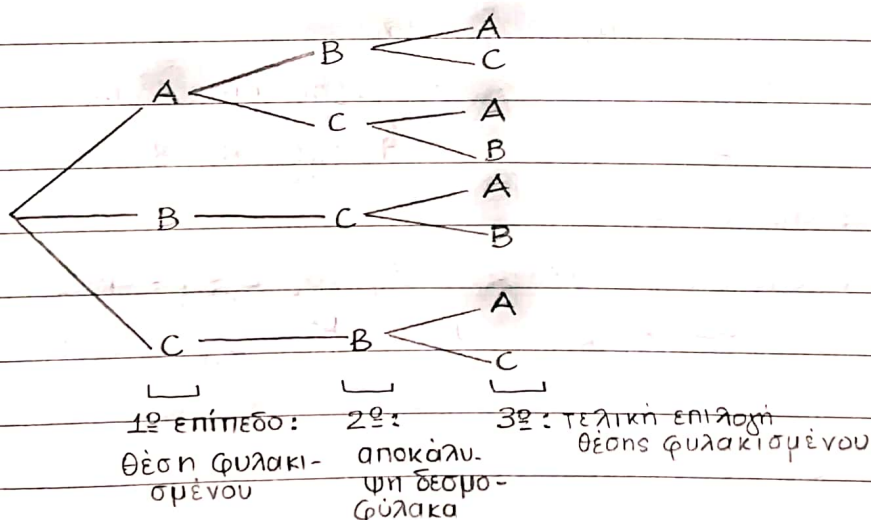 A
B
A
C
C
A
B
B
C
A
B
C
B
A
C
1º επίπεδο:
θέση φυλακι-
σμένου
2º:
αποκάλυ-
ψη δεσμο-
φύλακα
3º: τελική επιλογή
θέσης φυλακισμένου